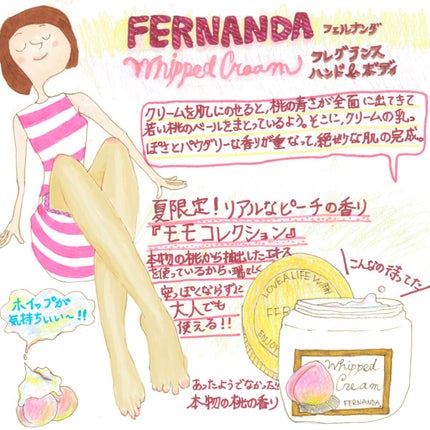 FERNANDA フェルナンダ
Whipped Cream フレグランス
ハンド&ボディ
クリームを肌にのせると、桃の青さが全面に出てきて
若い桃のベールをまとっているよう。そこに、クリームの乳っ
ぽさとパウダリーな香りが重なって、絶妙な肌の完成。
夏限定！リアルなピーチの香り
『モモコレクション』
本物の桃から抽出したエキス
を使っているから、瑞々しく
安っぽくならずに
大人でも
使える!!
こんなの待ってた
ホイップが
気持ちいい〜!!
LOVE A LIFE WITH
FER
ENJOY
あったようでなかった!!
本物の桃の香り
Whipped
Cream
FERNANDA